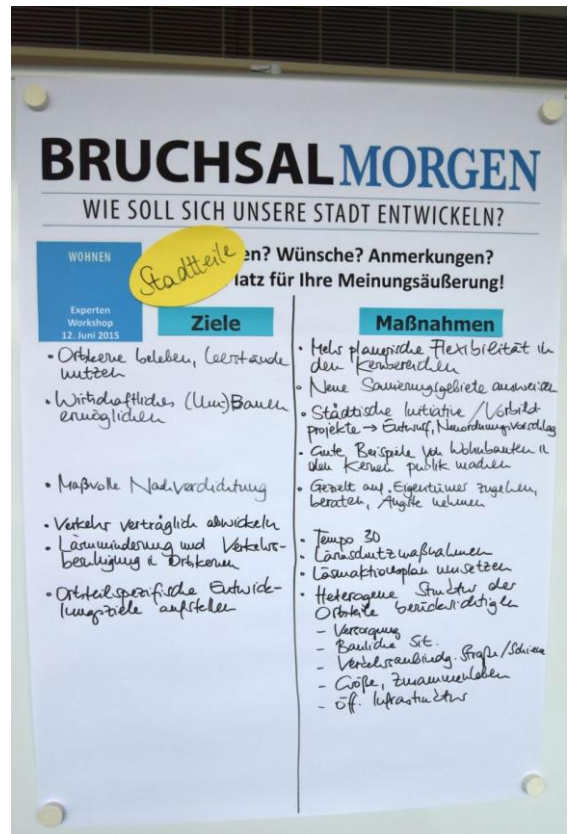 BRUCHSALMORGEN
WIE SOLL SICH UNSERE STADT ENTWICKELN?
WOHNEN
Experten
Workshop
12. Juni 2015
Stadtteile
en? Wünsche? Anmerkungen?
latz für Ihre Meinungsäußerung!
Ziele
• Ortskerne beleben, Leerstände
nutzen
• Wirtschaftliches (Um)Bauen
ermöglichen
• Maßvolle Nachverdichtung
• Verkehr verträglich abwickeln
• Lärmminderung und Verkehrs-
beruhigung i. Ortskernen
• Ortsteilspezifische Entwick-
lungsziele aufstellen
Maßnahmen
• Mehr planerische Flexibilität in
den Kernbereichen
• Neue Sanierungsgebiete ausweisen
• Städtische Initiative / Vorbild
projekte → Entwurf, Neuordnungsvorschlag
• Gute Beispiele von Wohnbauten in
den Kernen publik machen
• Gezielt auf Eigentümer zugehen,
beraten, Ängste nehmen
• Tempo 30
• Lärmschutzmaßnahmen
• Lärmaktionsplan umsetzen
• Heterogene Struktur der
Ortsteile berücksichtigen
– Versorgung
– Bauliche Sit.
– Verkehrsanbindg. Straße/Schiene
– Größe, Zusammenleben
– öff. Infrastruktur